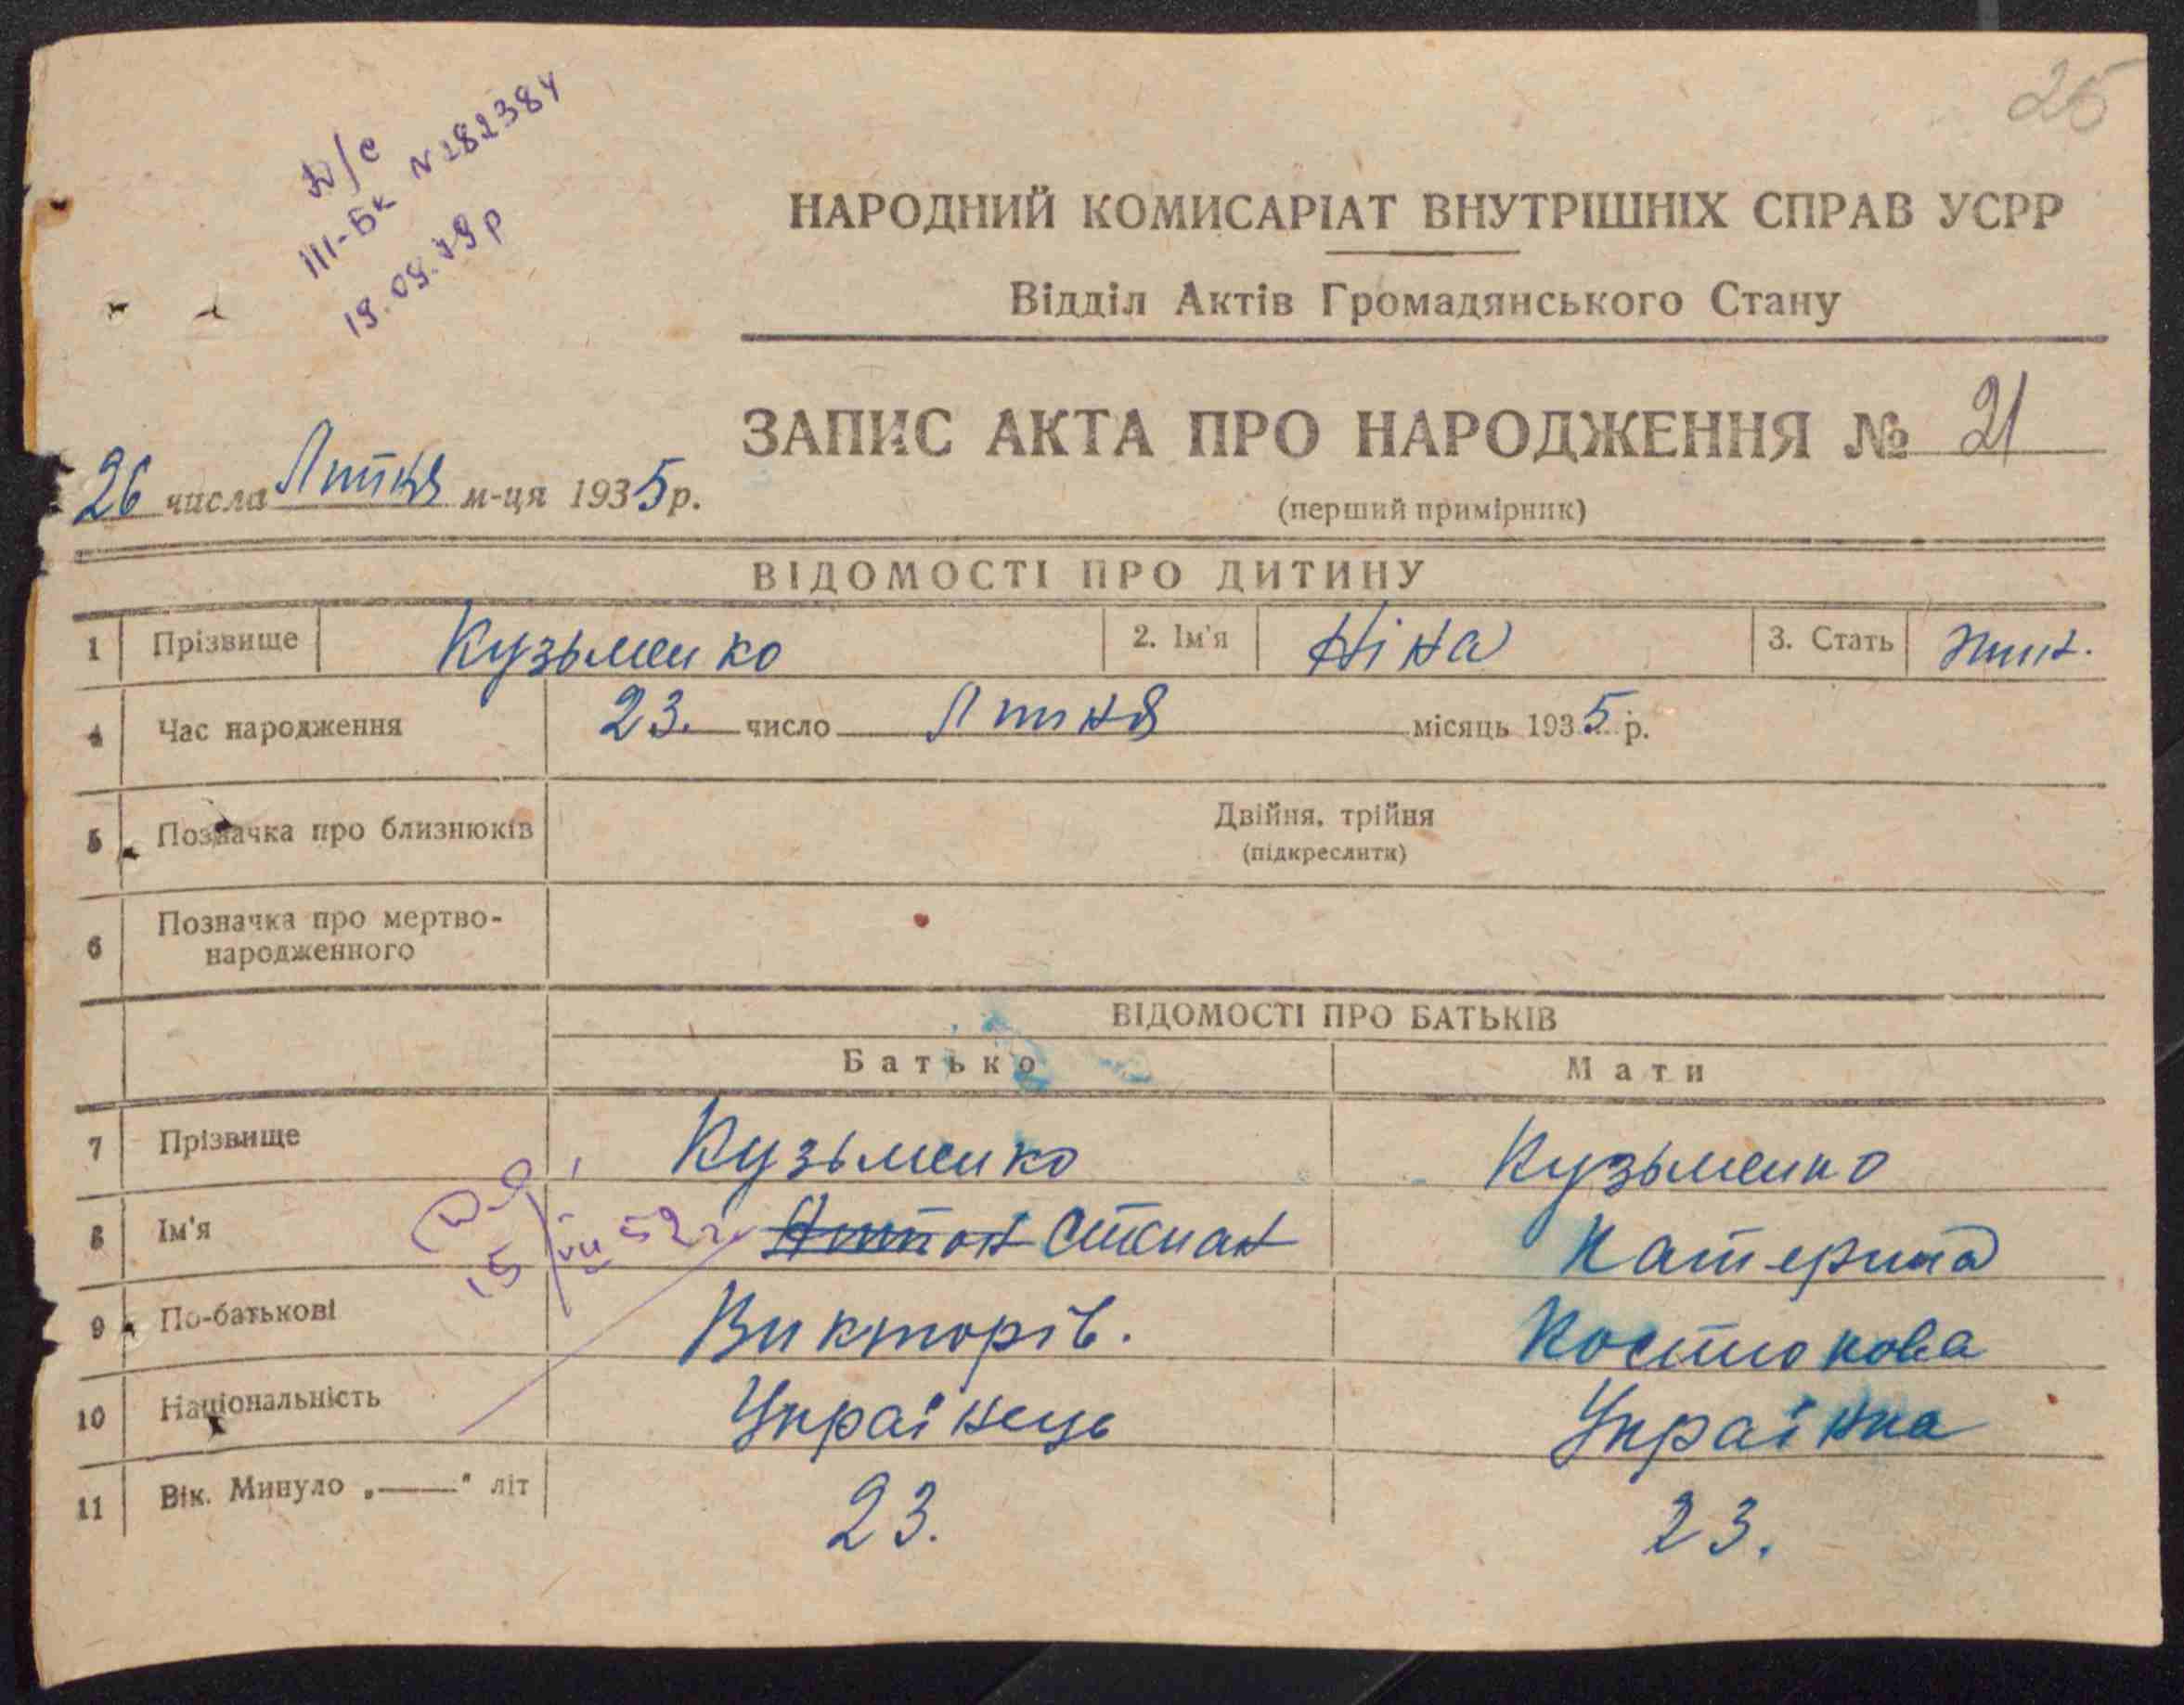 25
Д/с
III-БК N 282384
19.09.79р
НАРОДНИЙ КОМИСАРІАТ ВНУТРІШНІХ СПРАВ УСРР
Відділ Актів Громадянського Стану
ЗАПИС АКТА ПРО НАРОДЖЕННЯ № 21
26 числа Липня м-ця 1935 р.
(перший примірник)
ВІДОМОСТІ ПРО ДИТИНУ
1 Прізвище Кузьменко 2. Ім'я Ніна 3. Стать
4 Час народження 23. число Липня місяць 1935 р.
5 Позначка про близнюків Двійня, трійня
(підкреслити)
6 Позначка про мертво-
народженного
ВІДОМОСТІ ПРО БАТЬКІВ
Батько Мати
7 Прізвище Кузьменко Кузьменко
8 Ім'я Степан Катерина
15/VII 52 г.
9 По-батькові Викторів. Костюкова
10 Національність Українець Українка
11 Вік. Минуло „——" літ 23. 23.